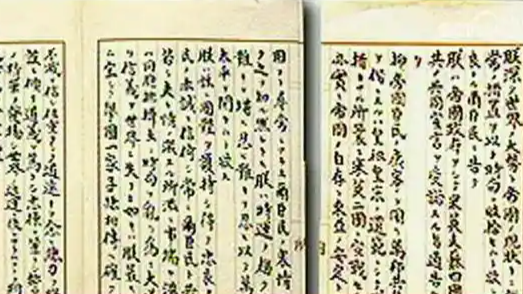 朕深ク世界ノ大勢ト帝國ノ現状ト
常ノ措置ヲ以テ時局ヲ收拾セム
良ナル爾臣民ニ告ク
朕ハ帝國政府ヲシテ米英支蘇四國
共ノ共同宣言ヲ受諾スル旨通告
リ
抑帝國臣民ノ康寧ヲ圖リ萬邦共
ヲ偕ニスルハ皇祖皇宗ノ遺範ニシテ
措カサル所曩ニ米英二國ニ宣戰セ
亦實ニ帝國ノ自存ト東亞ノ安定ト
固ヨリ尋常ニアラス爾臣民ノ衷情
ク之ヲ知ル然レトモ朕ハ時運ノ趨ク
難キヲ堪ヘ忍ヒ難キヲ忍ヒ以テ萬
太平ヲ開カムト欲ス
朕ハ茲ニ國體ヲ護持シ得テ忠良
民ノ赤誠ニ信倚シ常ニ爾臣民ト共
若シ夫レ情ノ激スル所濫ニ事端ヲ滋
ハ同胞排擠互ニ時局ヲ亂リ爲ニ大
信義ヲ世界ニ失フカ如キハ朕最モ
宜シク擧國一家子孫相傳ヘ確ク
不滅ヲ信シ任重クシテ道遠キヲ念ヒ總力ヲ
設ニ傾ケ道義ヲ篤クシ志操ヲ鞏クシ誓
精華ヲ發揚シ世界ノ進運ニ後レサラム